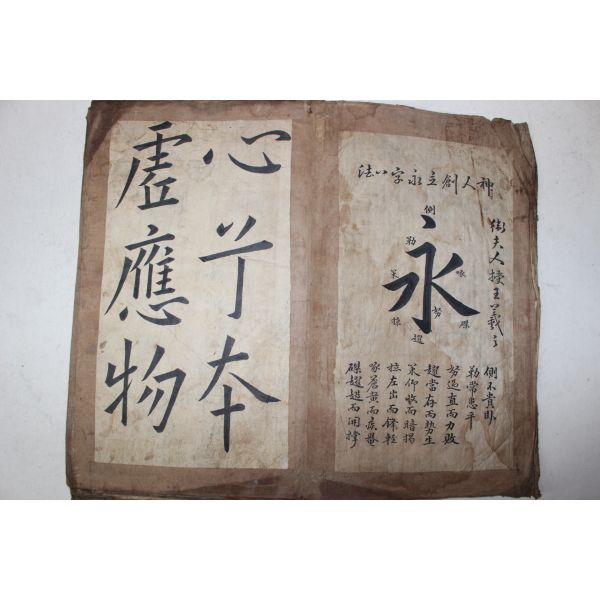 神人創立永字八法
衛夫人授王羲之
側
勒
努
策
掠
啄
磔
趯
永
側不貴臥
勒常患平
努過直而力敗
趯當存而勢生
策仰收而暗揭
掠左出而鋒輕
啄蒼黃而疾罨
磔而開撑
心兮本
虛應物